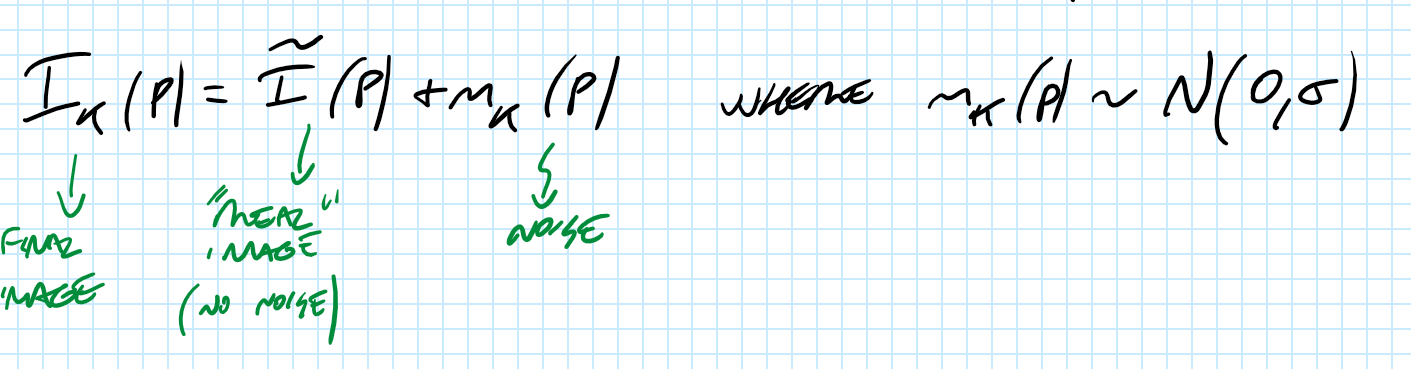 I_K (P) = Ĩ (P) + n_K (P) WHERE n_K (P) ~ N(0,σ)
FINAL
IMAGE
"REAL"
IMAGE
(NO NOISE)
NOISE